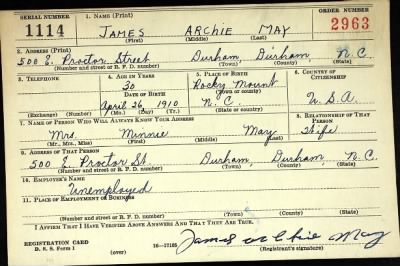 SERIAL NUMBER 1. NAME (Print) ORDER NUMBER
1114 JAMES ARCHIE MAY 2963
(First) (Middle) (Last)
2. ADDRESS (Print)
500 E. Proctor Street Durham, Durham, N.C.
(Number and street or R. F. D. number) (Town) (County) (State)
3. TELEPHONE 4. AGE IN YEARS 5. PLACE OF BIRTH 6. COUNTRY OF CITIZENSHIP
30 Rocky Mount
DATE OF BIRTH (Town or county)
April 26, 1910 N.C. U.S.A.
(Exchange) (Number) (Mo.) (Day) (Yr.) (State or country)
7. NAME OF PERSON WHO WILL ALWAYS KNOW YOUR ADDRESS 8. RELATIONSHIP OF THAT PERSON
Mrs. Minnie May Wife
(Mr., Mrs., Miss) (First) (Middle) (Last)
9. ADDRESS OF THAT PERSON
500 E. Proctor St. Durham, Durham, N.C.
(Number and street or R. F. D. number) (Town) (County) (State)
10. EMPLOYER'S NAME
Unemployed
11. PLACE OF EMPLOYMENT OR BUSINESS
(Number and street or R. F. D. number) (Town) (County) (State)
I AFFIRM THAT I HAVE VERIFIED ABOVE ANSWERS AND THAT THEY ARE TRUE.
REGISTRATION CARD James Archie May
D. S. S. Form 1 (over) 16—17105 (Registrant's signature)